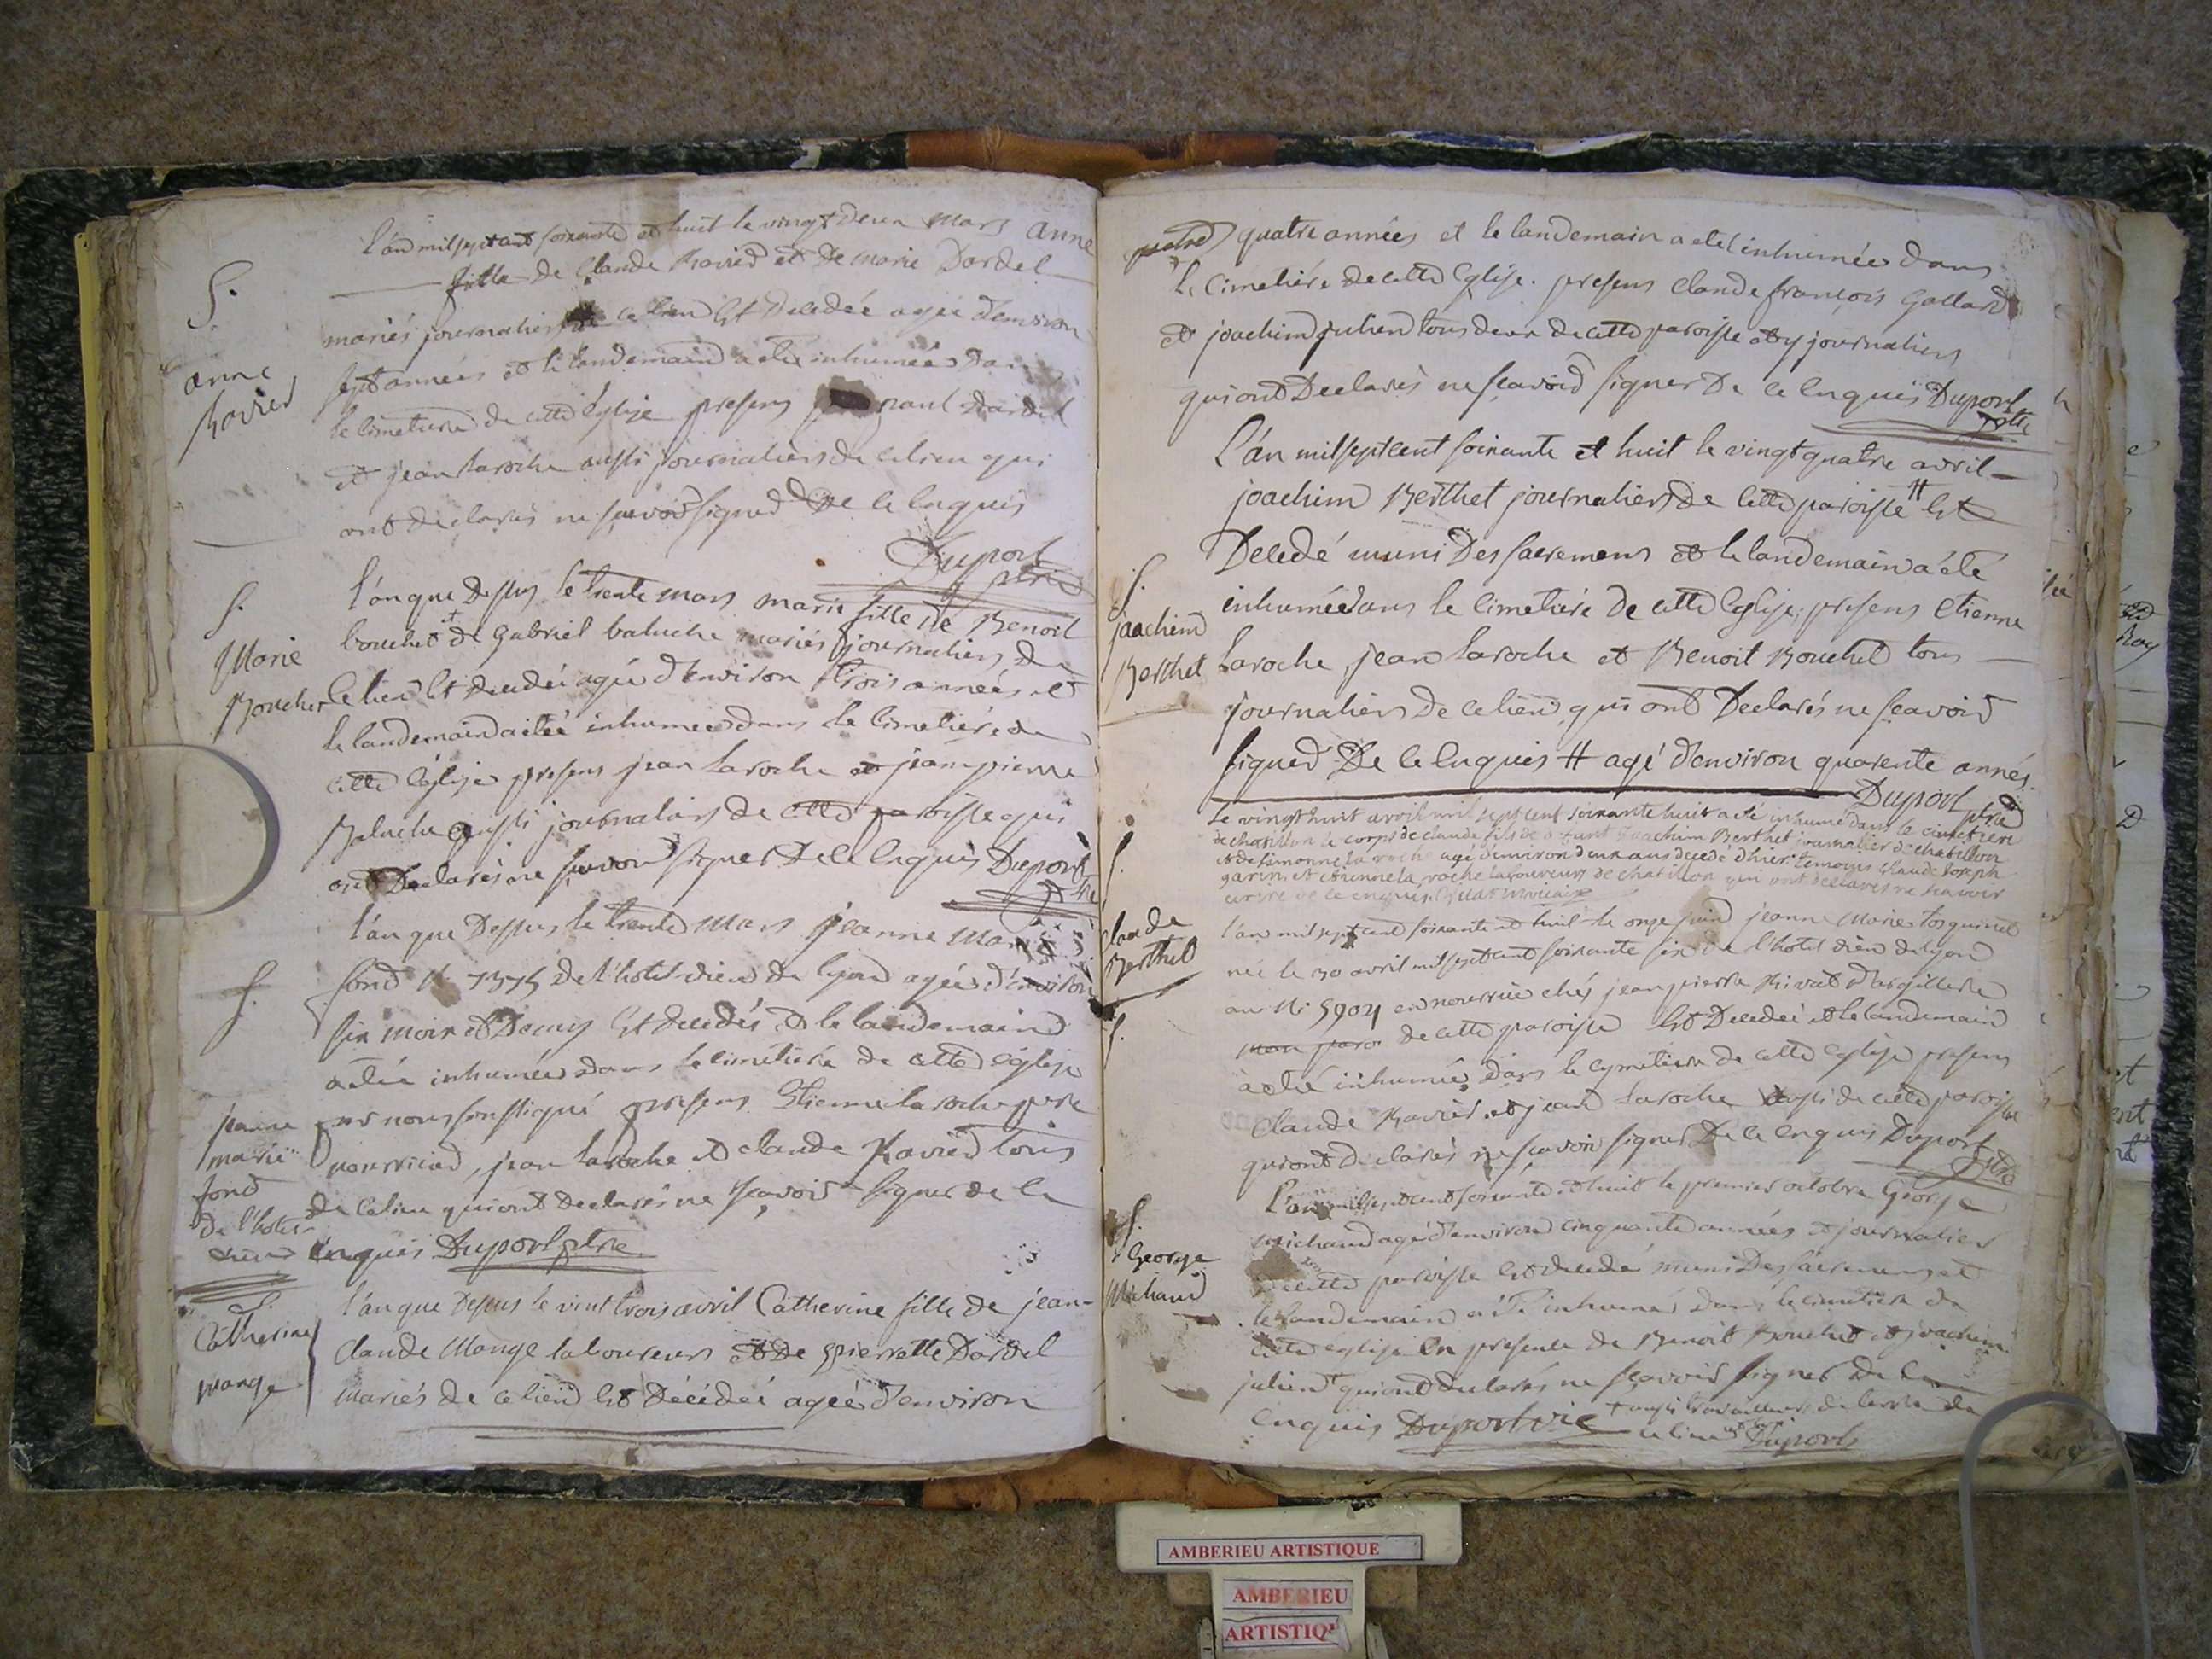 L'an mil sept cent soixante et huit le vingt deux mars anne
fille de Claude Ravier et de marie Dardel
mariés journaliers de ce lieu est decedée agée d'environ
sept années et le landemain a etée inhumée dans
le cimetiere de cette Eglise presens paul dardel
et jean Laroche aussi journaliers de ce lieu qui
ont declarés ne scavoir signer De ce Enquis
Duport ptre
S.
anne
Ravier
l'an que Dessus le trente mars marie fille de Benoit
bouchet et de Gabriel baluche mariés journaliers de
ce lieu est decedée agée d'environ trois années et
le landemain a etée inhumée dans le Cimetiére de
cette Eglise presens jean Laroche et jean pierre
Baluche aussi journaliers de cette paroisse qui
ont Declarés ne scavoir signer De ce Enquis Duport
ptre
S.
Marie
Bouchet
l'an que Dessus le trente mars jeanne Marie
fond N 7375 de l'hotel-dieu de lyon agée d'environ
six mois et Demy est decedée et le landemain
a etée inhumée dans le cimétiére de cette église
par nous soussigné presens Etienne laroche pere
nourricier, jean Laroche et claude Ravier tous
de ce lieu qui ont declarés ne scavoir signer de ce
enquis Duport ptre
S.
jeanne
marie
fond
de l'hotel
dieu
l'an que Dessus le vint trois avril Catherine fille de jean-
claude Mange laboureur et De pierrette Dardel
mariés de ce lieu est décédée agée d'environ
S.
Catherine
mange
quatre quatre années et le landemain a etée inhumée dans
le Cimetiére de cette Eglise. presens claude françois Gallard
et joachim julien tous deux de cette paroisse et journaliers
qui ont Declarés ne scavoir signer De ce Enquis Duport
ptre
L'an mil sept cent soixante et huit le vingt quatre avril
joachim Berthet journalier de cette paroisse # est
Decedé muni Des sacremens et le landemain a été
inhumée dans le Cimetiére de cette Eglise, presens Etienne
Laroche, jean Laroche et Benoit Bouchet tous
journaliers de ce lieu qui ont Declarés ne scavoir
signer De ce Enquis # agé d'environ quarente années
Duport ptre
S.
joachim
Berthet
Le vingt huit avril mil sept cent soixante huit a eté inhumé dans le cimetiere
de chatillon le corps de claude fils de defunt joachim Berthet journalier de chatillon
et de simonne la roche agé d'environ deux ans decedé d'hier. temoins claude joseph
garin, et etienne la roche laboureurs de chatillon qui ont declarés ne scavoir
ecrire de ce enquis
S.
Claude
Berthet
l'an mil sept cent soixante et huit le onze juin jeanne Marie
née le 30 avril mil sept cent soixante six de l'hotel dieu de lyon
au N. 5904 en nourrice chés jean pierre Rivat
mon paro de cette paroisse est Decedée et le landemain
a eté inhumée dans le cymetiere de cette Eglise presens
Claude Ravier et jean Laroche aussi de cette paroisse
qui ont declarés ne scavoir signer De ce Enquis Duport
ptre
S.
L'an mil sept cent soixante et huit le premier octobre George
michaud agé d'environ cinquante années et journalier
de cette paroisse est decedé muni Des sacremens et
le landemain a été inhumé dans le cimetiere de
cette église En presence de Benoit Bouchet et joachim
julien + qui ont declarés ne scavoir signer De ce
enquis Duport vic + aussi travailleurs de terre de
ce lieu Duport
S.
George
Michaud
AMBERIEU ARTISTIQUE
AMBERIEU
ARTISTIQ